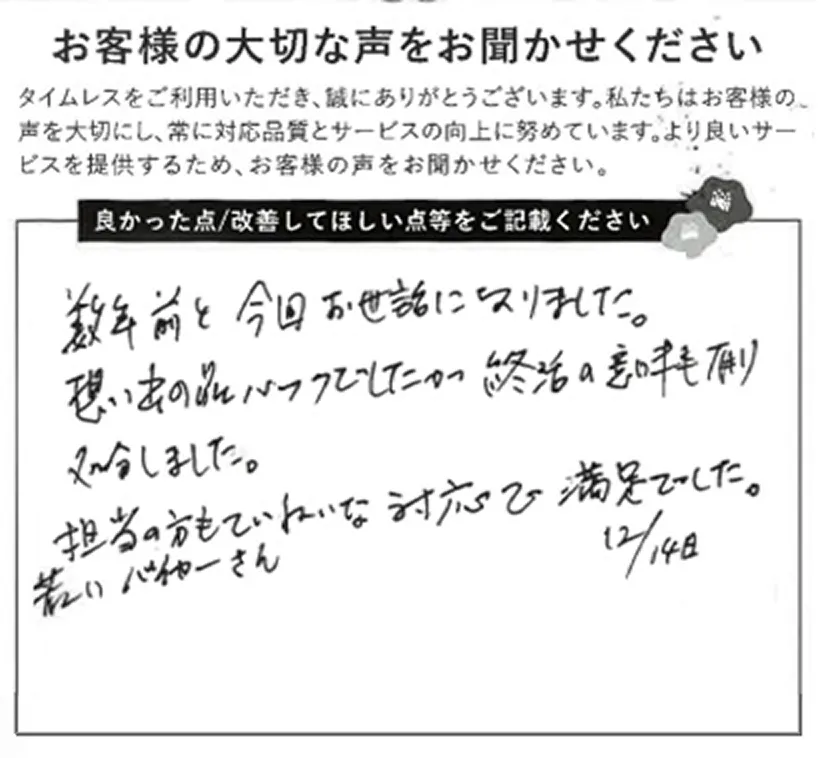 お客様の大切な声をお聞かせください
タイムレスをご利用いただき、誠にありがとうございます。私たちはお客様の
声を大切にし、常に対応品質とサービスの向上に努めています。より良いサー
ビスを提供するため、お客様の声をお聞かせください。
良かった点/改善してほしい点等をご記載ください
数年前と今回お世話になりました。
想い出の品バッグでしたが終活の意味も有り
処分しました。
担当の方もていねいな対応で満足でした。
若いバイヤーさん
12/14日